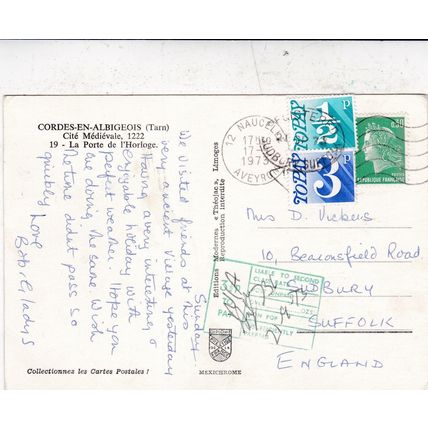 CORDES-EN-ALBIGEOIS (Tarn)
Cité Médiévale, 1222
19 - La Porte de l'Horloge.
Sunday
We visited friends at this
very ancient village yesterday
Having a very interesting &
enjoyable holiday with
perfect weather. Hope you
are doing the same. Wish
the time didnt pass so
quickly Love
Bob & Gladys
Editions Modernes « Théojac », Limoges
Reproduction interdite
12 NAUCELLE
17H
17-9
1973
AVEYRON
SUDBURY SUFFOLK
TO PAY
½P
TO PAY
3P
0,30
REPUBLIQUE FRANÇAISE
Miss D. Vickers
10, Beaconsfield Road
SUDBURY
SUFFOLK
ENGLAND
LIABLE TO SECOND
CLASS RATE
Collectionnez les Cartes Postales !
MEXICHROME